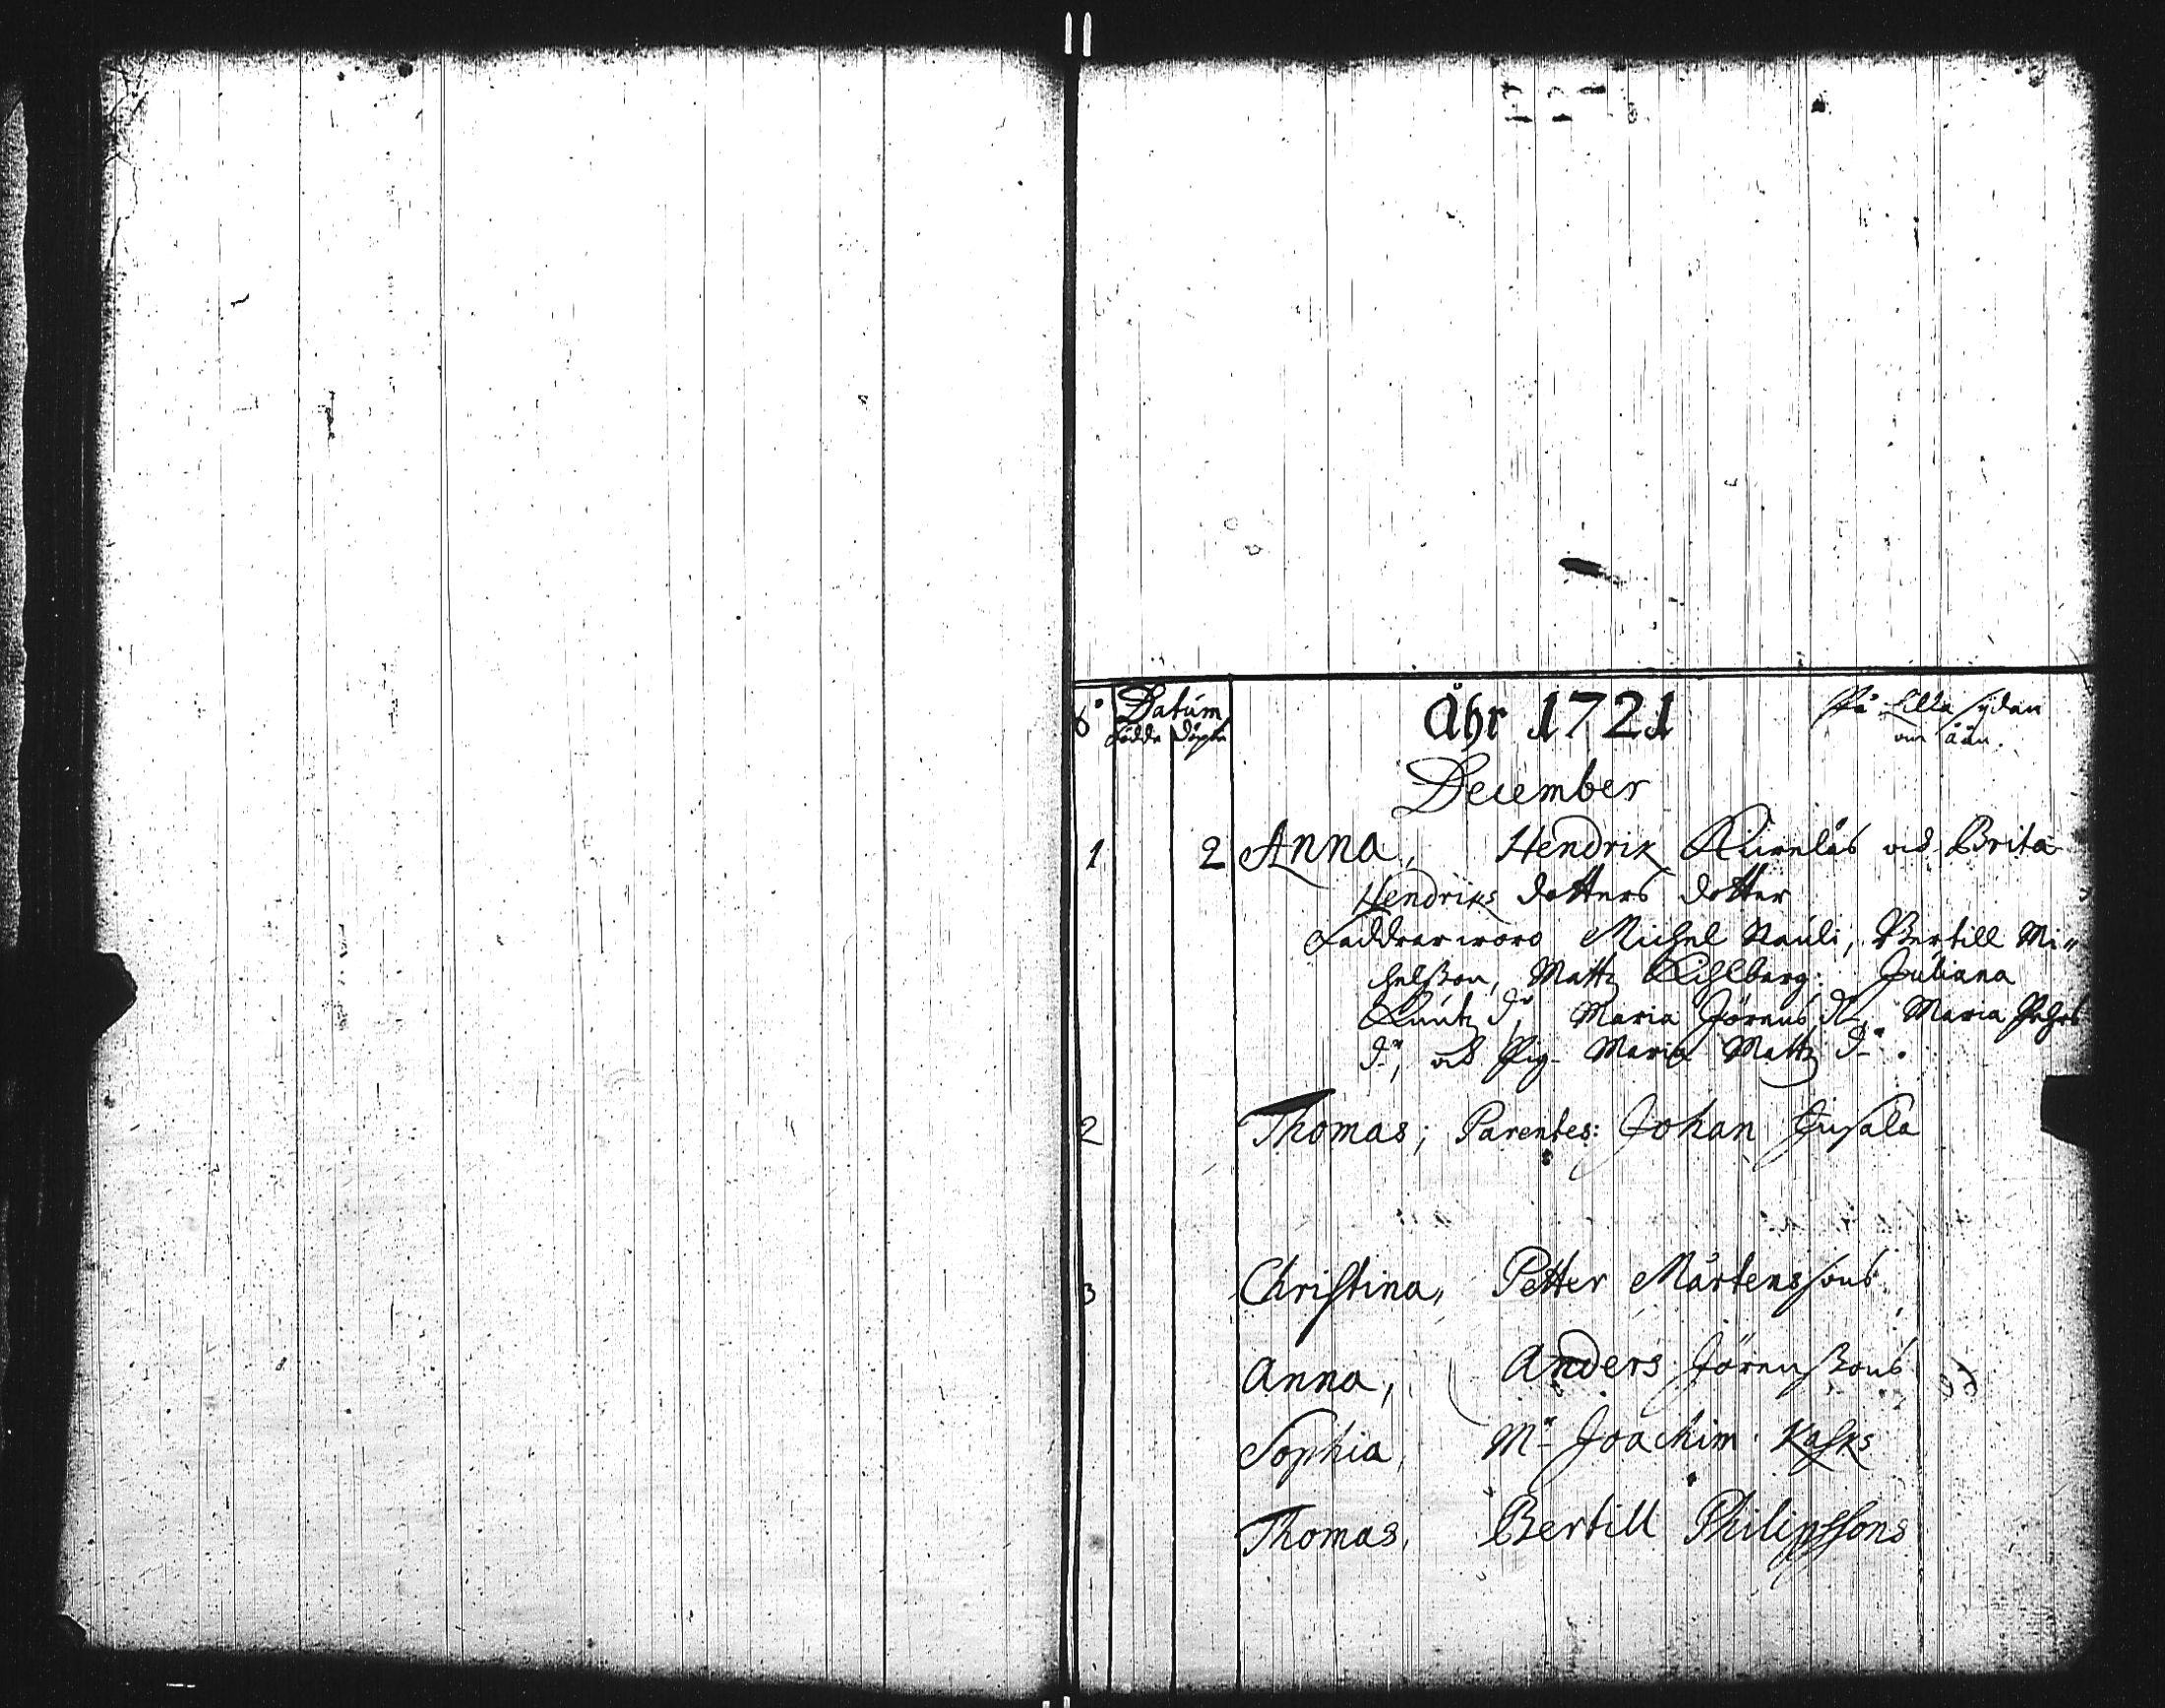 1721
Datum
Födde döpte
Åhr 1721
På Lilla sydan
om åån.
December
1 2 Anna, Hendrik och Brita
Hendriks dotters dotter
Faddrar woro Michel Pauli, Bertill Mi-
chelsson, Matts Juliana
Maria Jörens dr Maria
dr, och Pig. Maria Matts dr.
2 Thomas; Parentes: Johan
3 Christina, Petter Mårtenssons
Anna, Anders Jörenssons
Sophia, Mr Joachim Kasks
Thomas, Bertill Philipssons